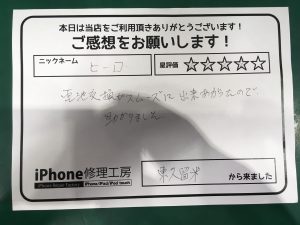 本日は当店をご利用頂きありがとうございます!
ご感想をお願いします!
ニックネーム
ヒーロ
星評価 ☆☆☆☆☆
電池交換がスムーズに出来あがったので
助かりました
iPhone修理工房
iPhone Repair Factory iPhone/iPad/iPod touch
東久留米 から来ました